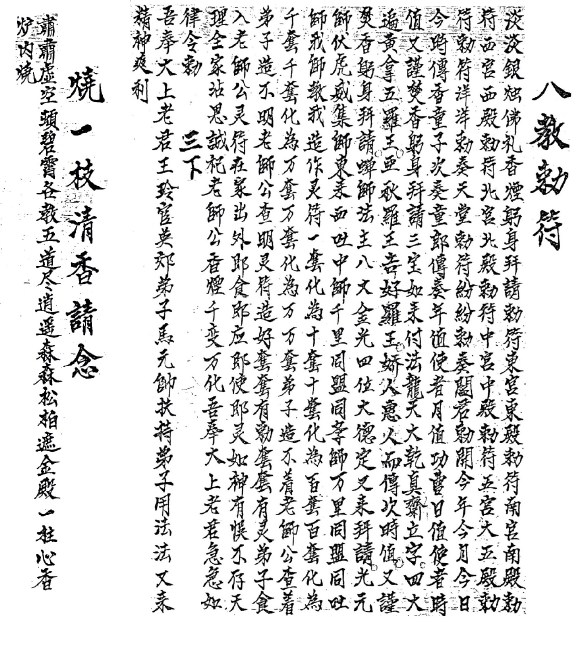 八教勅符
淡淡銀燭佛礼香煙躬身拜請勅符東宮東殿勅符南宮南殿勅
符西宮西殿勅符北宮北殿勅符中宮中殿勅符五宮大五殿勅
符勅符洋洋勅奏天堂勅符紛紛勅奏閻君勅開今年今月今日
今時傳香童子次奏童郎傳奏年值使者月值功曹日值使者時
值又謹焚香躬身拜請三宝如来付法龍天大乾真齋立字四大
遍黄拿五羅王亜秋羅王告好羅王嬌人惡人而傳次時值又謹
焚香躬身拜請蟬師法主八丈金光四位大德定又来拜請光元
師伏虎威集師東来西吐中師千里同盟同孝師万里同盟同吐
師我師教我造作灵符一套化為十套十套化為百套百套化為
千套千套化為万套万套化為万万套弟子造不着老師公查着
弟子造不明老師公查明灵符造好套套有勅套套有灵弟子食
入老師公灵符在家出外即食即应即使即灵如神有悮不存天
理全家站思誠祀老師公香煙千变万化吾奉大上老君急急如
律令勅 三下
吾奉大上老君王玲官英郊弟子馬元帥扶持弟子用法法又来
精神爽利
燒一枝清香請念
肅肅虛空頭碧霄各教五道尽逍遥森森松柏遮金殿一柱心香
炉内燒